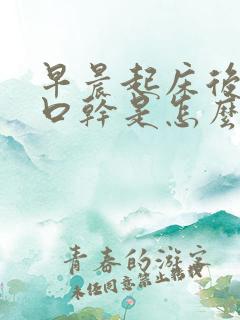 早晨起床後
口幹是怎麼
青春的游客
未经同意禁止转载